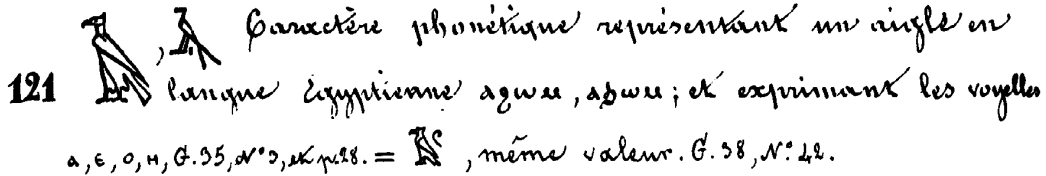 , Caractère phonétique représentant un aigle en
121 langue égyptienne ⲁϩⲱⲙ, ⲁϧⲱⲙ; et exprimant les voyelles
ⲁ, ⲉ, ⲟ, ⲏ, G. 35, N° 3, et p. 28. = , même valeur. G. 38, N.° 42.